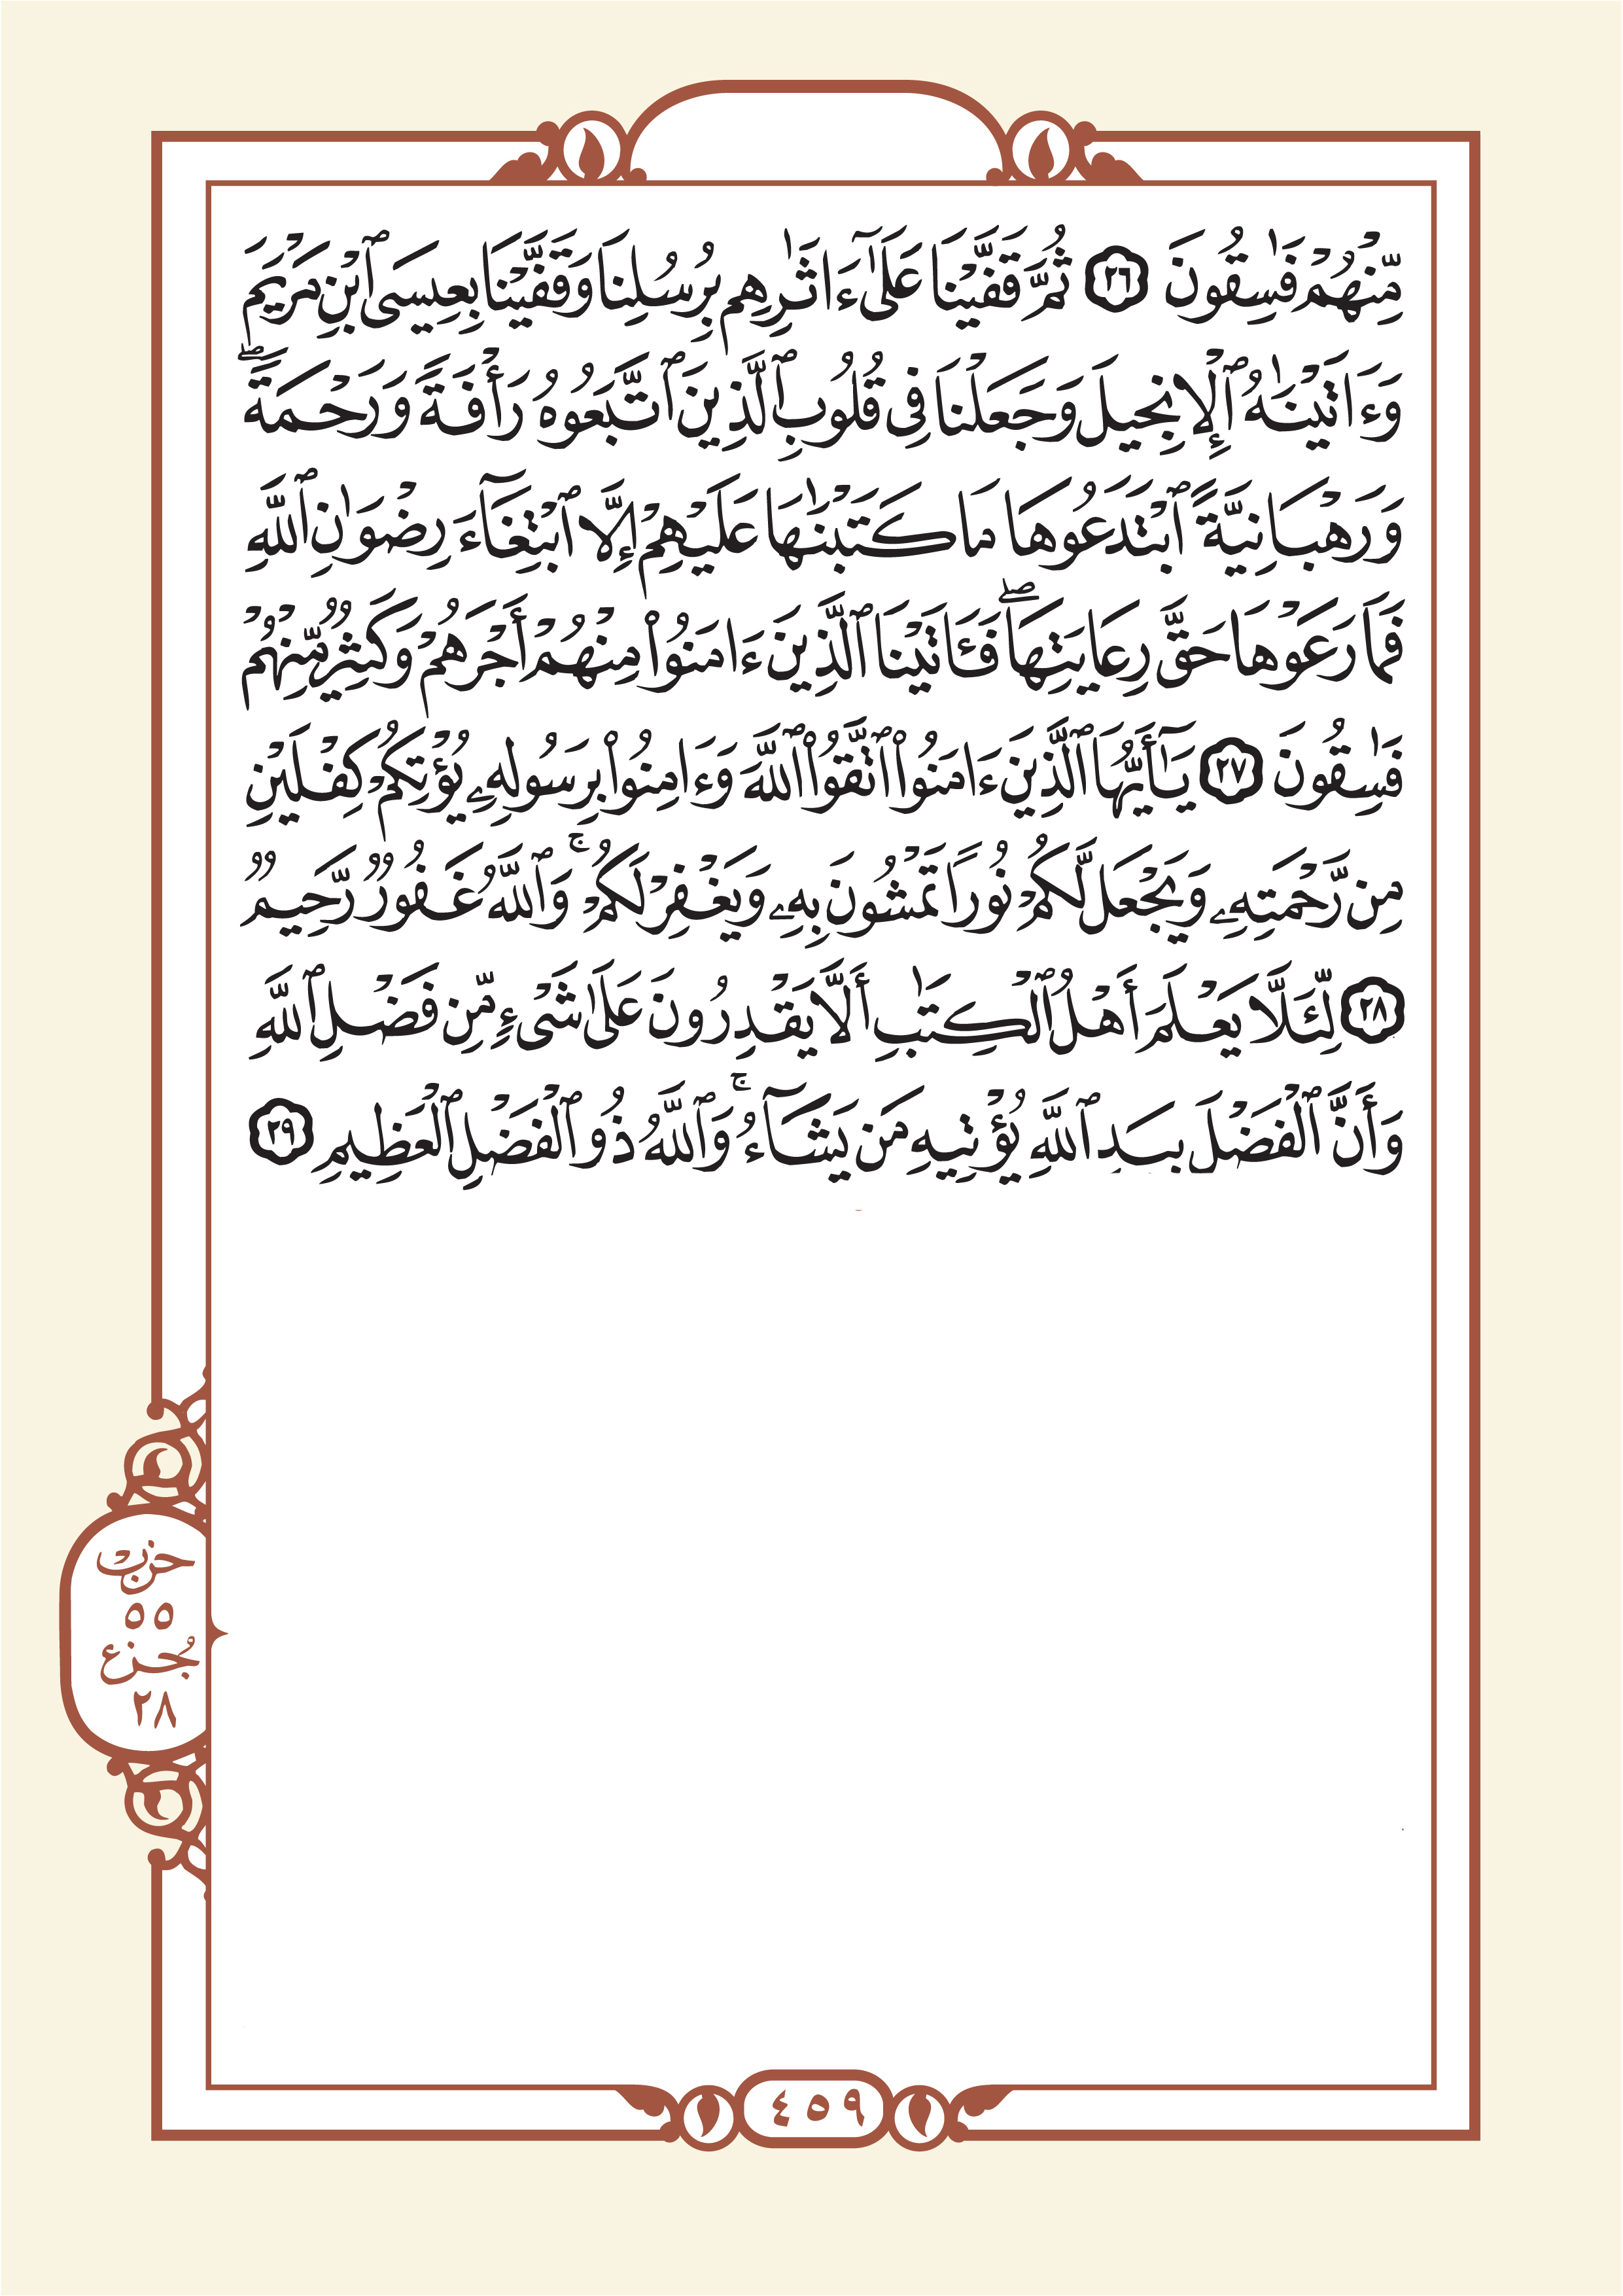 مِّنْهُمْ فَٰسِقُونَ ٢٦ ثُمَّ قَفَّيْنَا عَلَىٰٓ ءَاثَٰرِهِم بِرُسُلِنَا وَقَفَّيْنَا بِعِيسَى ٱبْنِ مَرْيَمَ
وَءَاتَيْنَٰهُ ٱلْإِنجِيلَ وَجَعَلْنَا فِى قُلُوبِ ٱلَّذِينَ ٱتَّبَعُوهُ رَأْفَةً وَرَحْمَةً ۖ
وَرَهْبَانِيَّةً ٱبْتَدَعُوهَا مَا كَتَبْنَٰهَا عَلَيْهِمْ إِلَّا ٱبْتِغَآءَ رِضْوَٰنِ ٱللَّهِ
فَمَا رَعَوْهَا حَقَّ رِعَايَتِهَا ۖ فَـَٔاتَيْنَا ٱلَّذِينَ ءَامَنُوا۟ مِنْهُمْ أَجْرَهُمْ وَكَثِيرٌ مِّنْهُمْ
فَٰسِقُونَ ٢٧ يَٰٓأَيُّهَا ٱلَّذِينَ ءَامَنُوا۟ ٱتَّقُوا۟ ٱللَّهَ وَءَامِنُوا۟ بِرَسُولِهِۦ يُؤْتِكُمْ كِفْلَيْنِ
مِن رَّحْمَتِهِۦ وَيَجْعَل لَّكُمْ نُورًا تَمْشُونَ بِهِۦ وَيَغْفِرْ لَكُمْ ۚ وَٱللَّهُ غَفُورٌ رَّحِيمٌ
٢٨ لِّئَلَّا يَعْلَمَ أَهْلُ ٱلْكِتَٰبِ أَلَّا يَقْدِرُونَ عَلَىٰ شَىْءٍ مِّن فَضْلِ ٱللَّهِ
وَأَنَّ ٱلْفَضْلَ بِيَدِ ٱللَّهِ يُؤْتِيهِ مَن يَشَآءُ ۚ وَٱللَّهُ ذُو ٱلْفَضْلِ ٱلْعَظِيمِ ٢٩
حزب
٥٥
جُزء
٢٨
٤٥٩